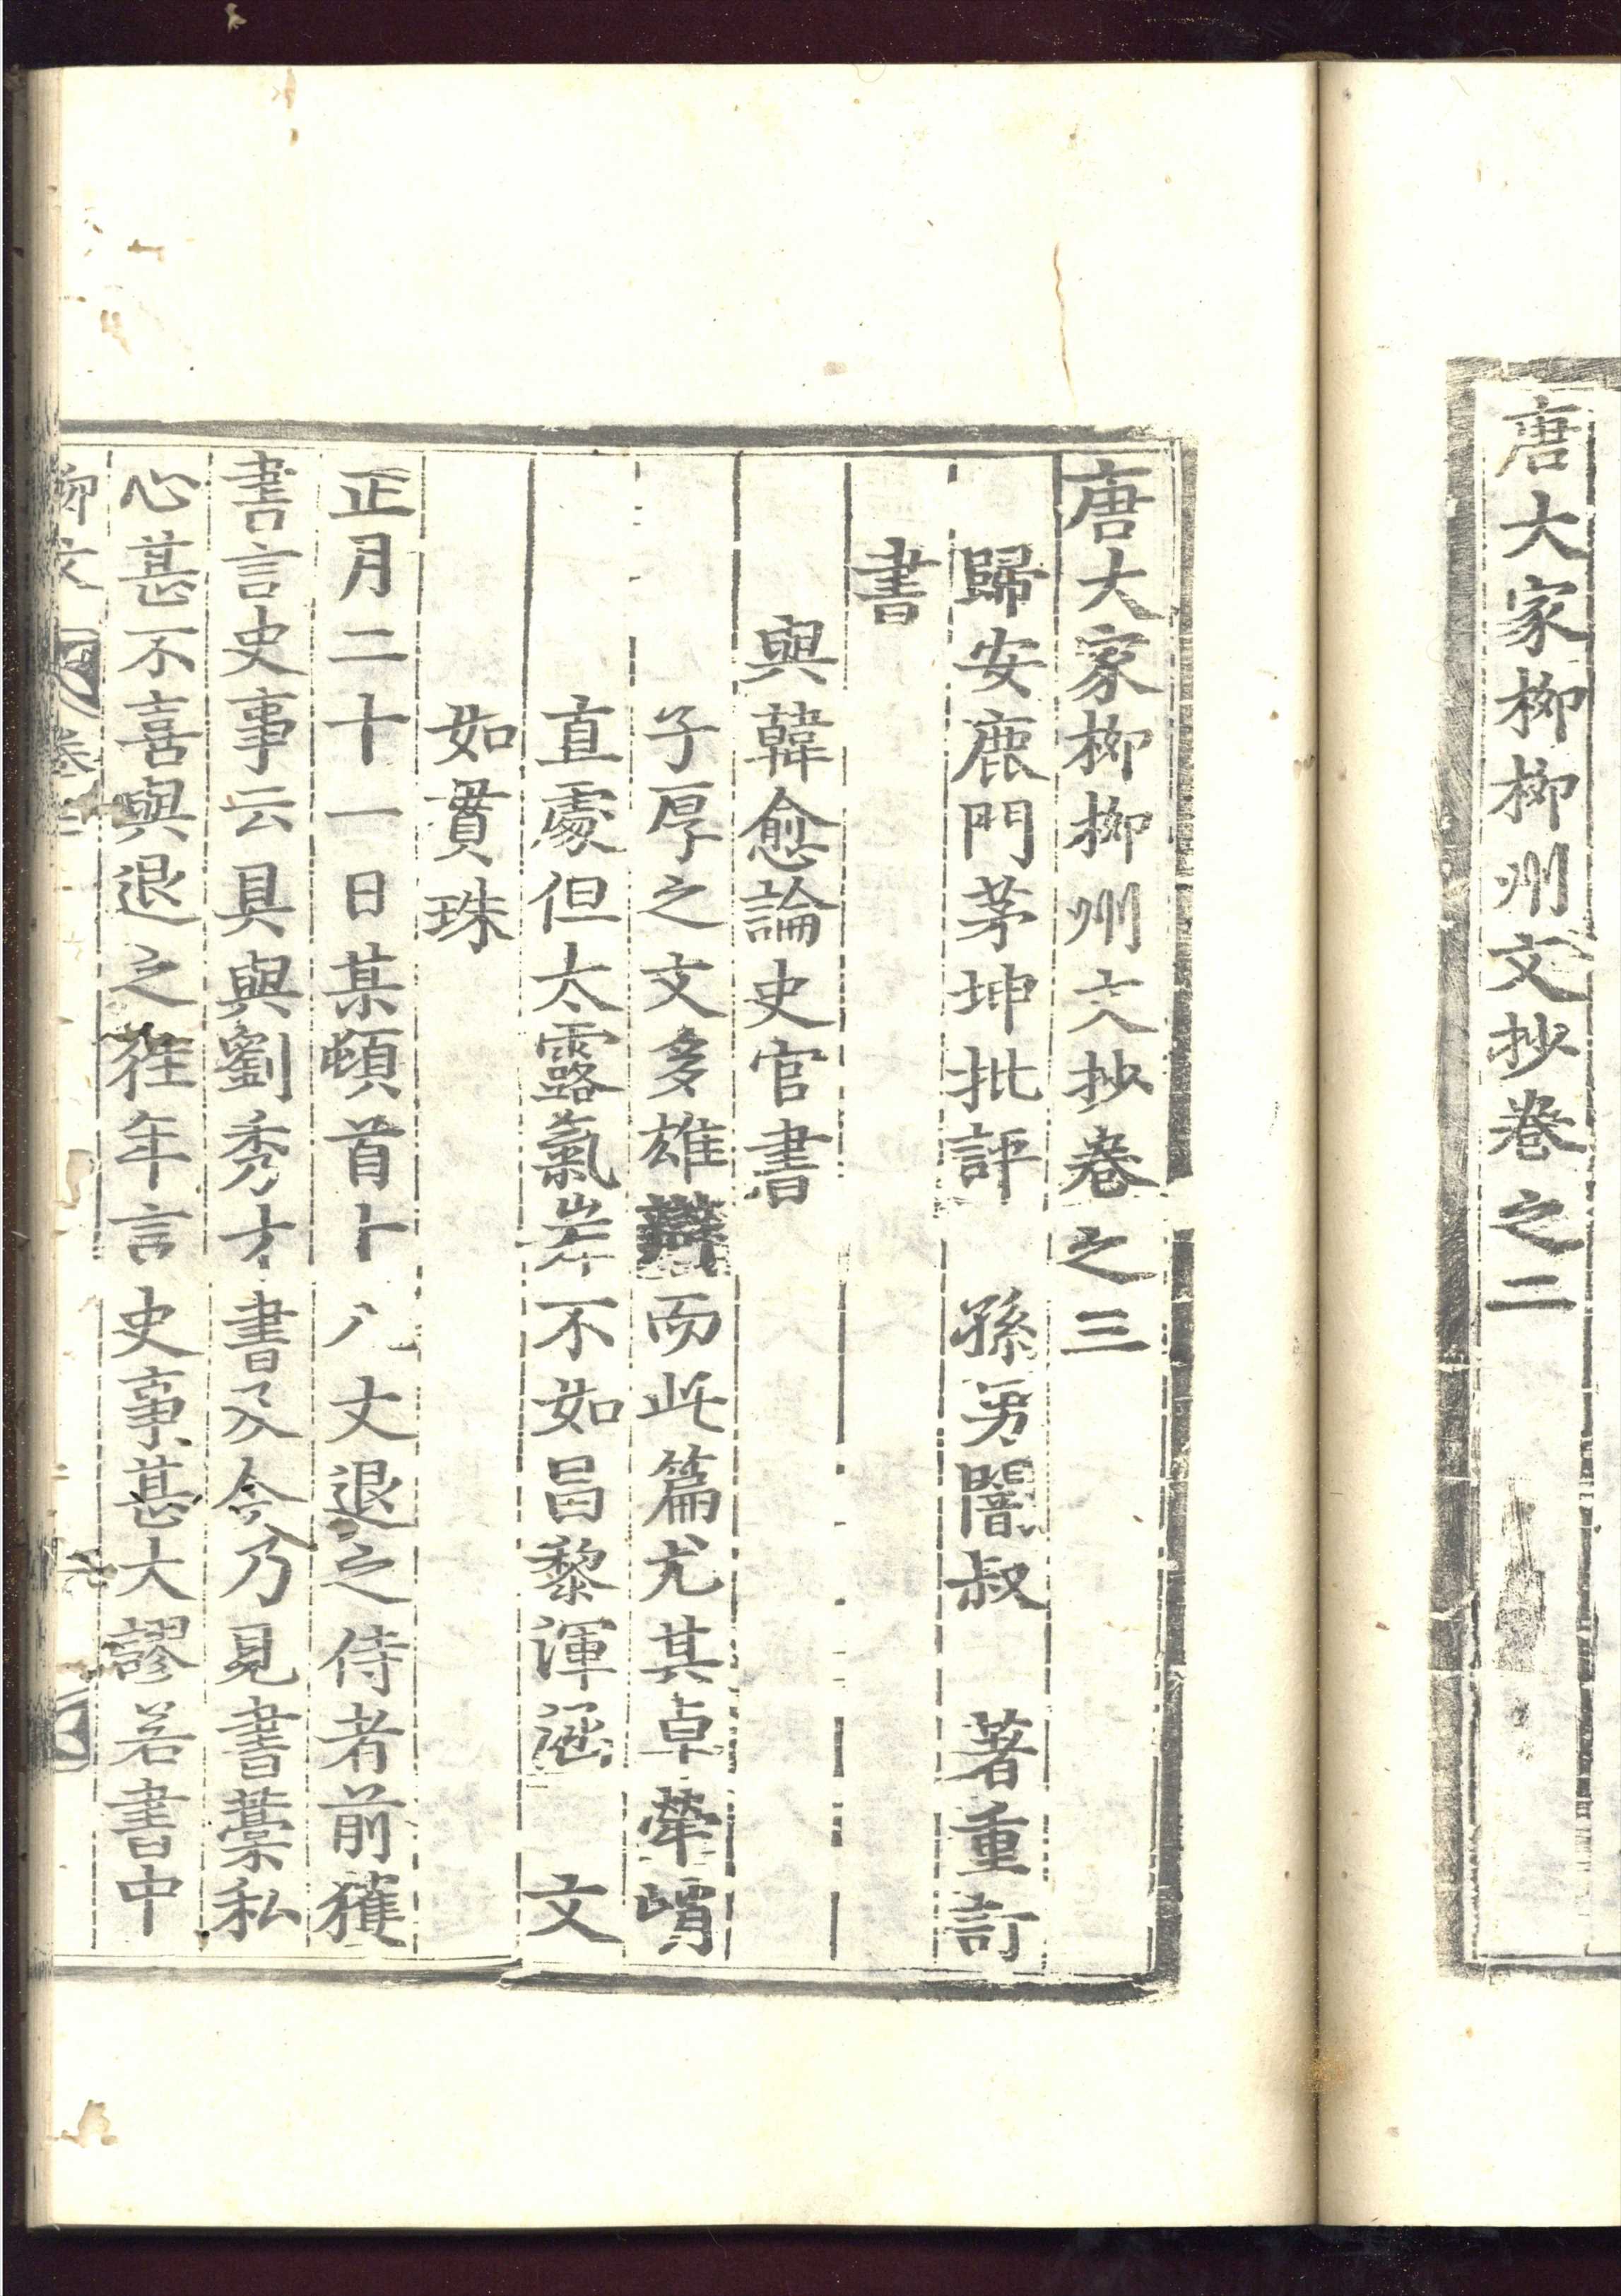 唐大家柳柳州文抄卷之二
唐大家柳柳州文抄卷之三
歸安鹿門茅坤批評 孫男闇叔 著重訂
書
與韓愈論史官書
子厚之文多雄辯而此篇尤其卓犖峭
直處但太露氣岸不如昌黎渾涵 文
如貫珠
正月二十一日某頓首十八丈退之侍者前獲
書言史事云具與劉秀才書及今乃見書藁私
心甚不喜與退之往年言史事甚大謬若書中
柳文 卷三